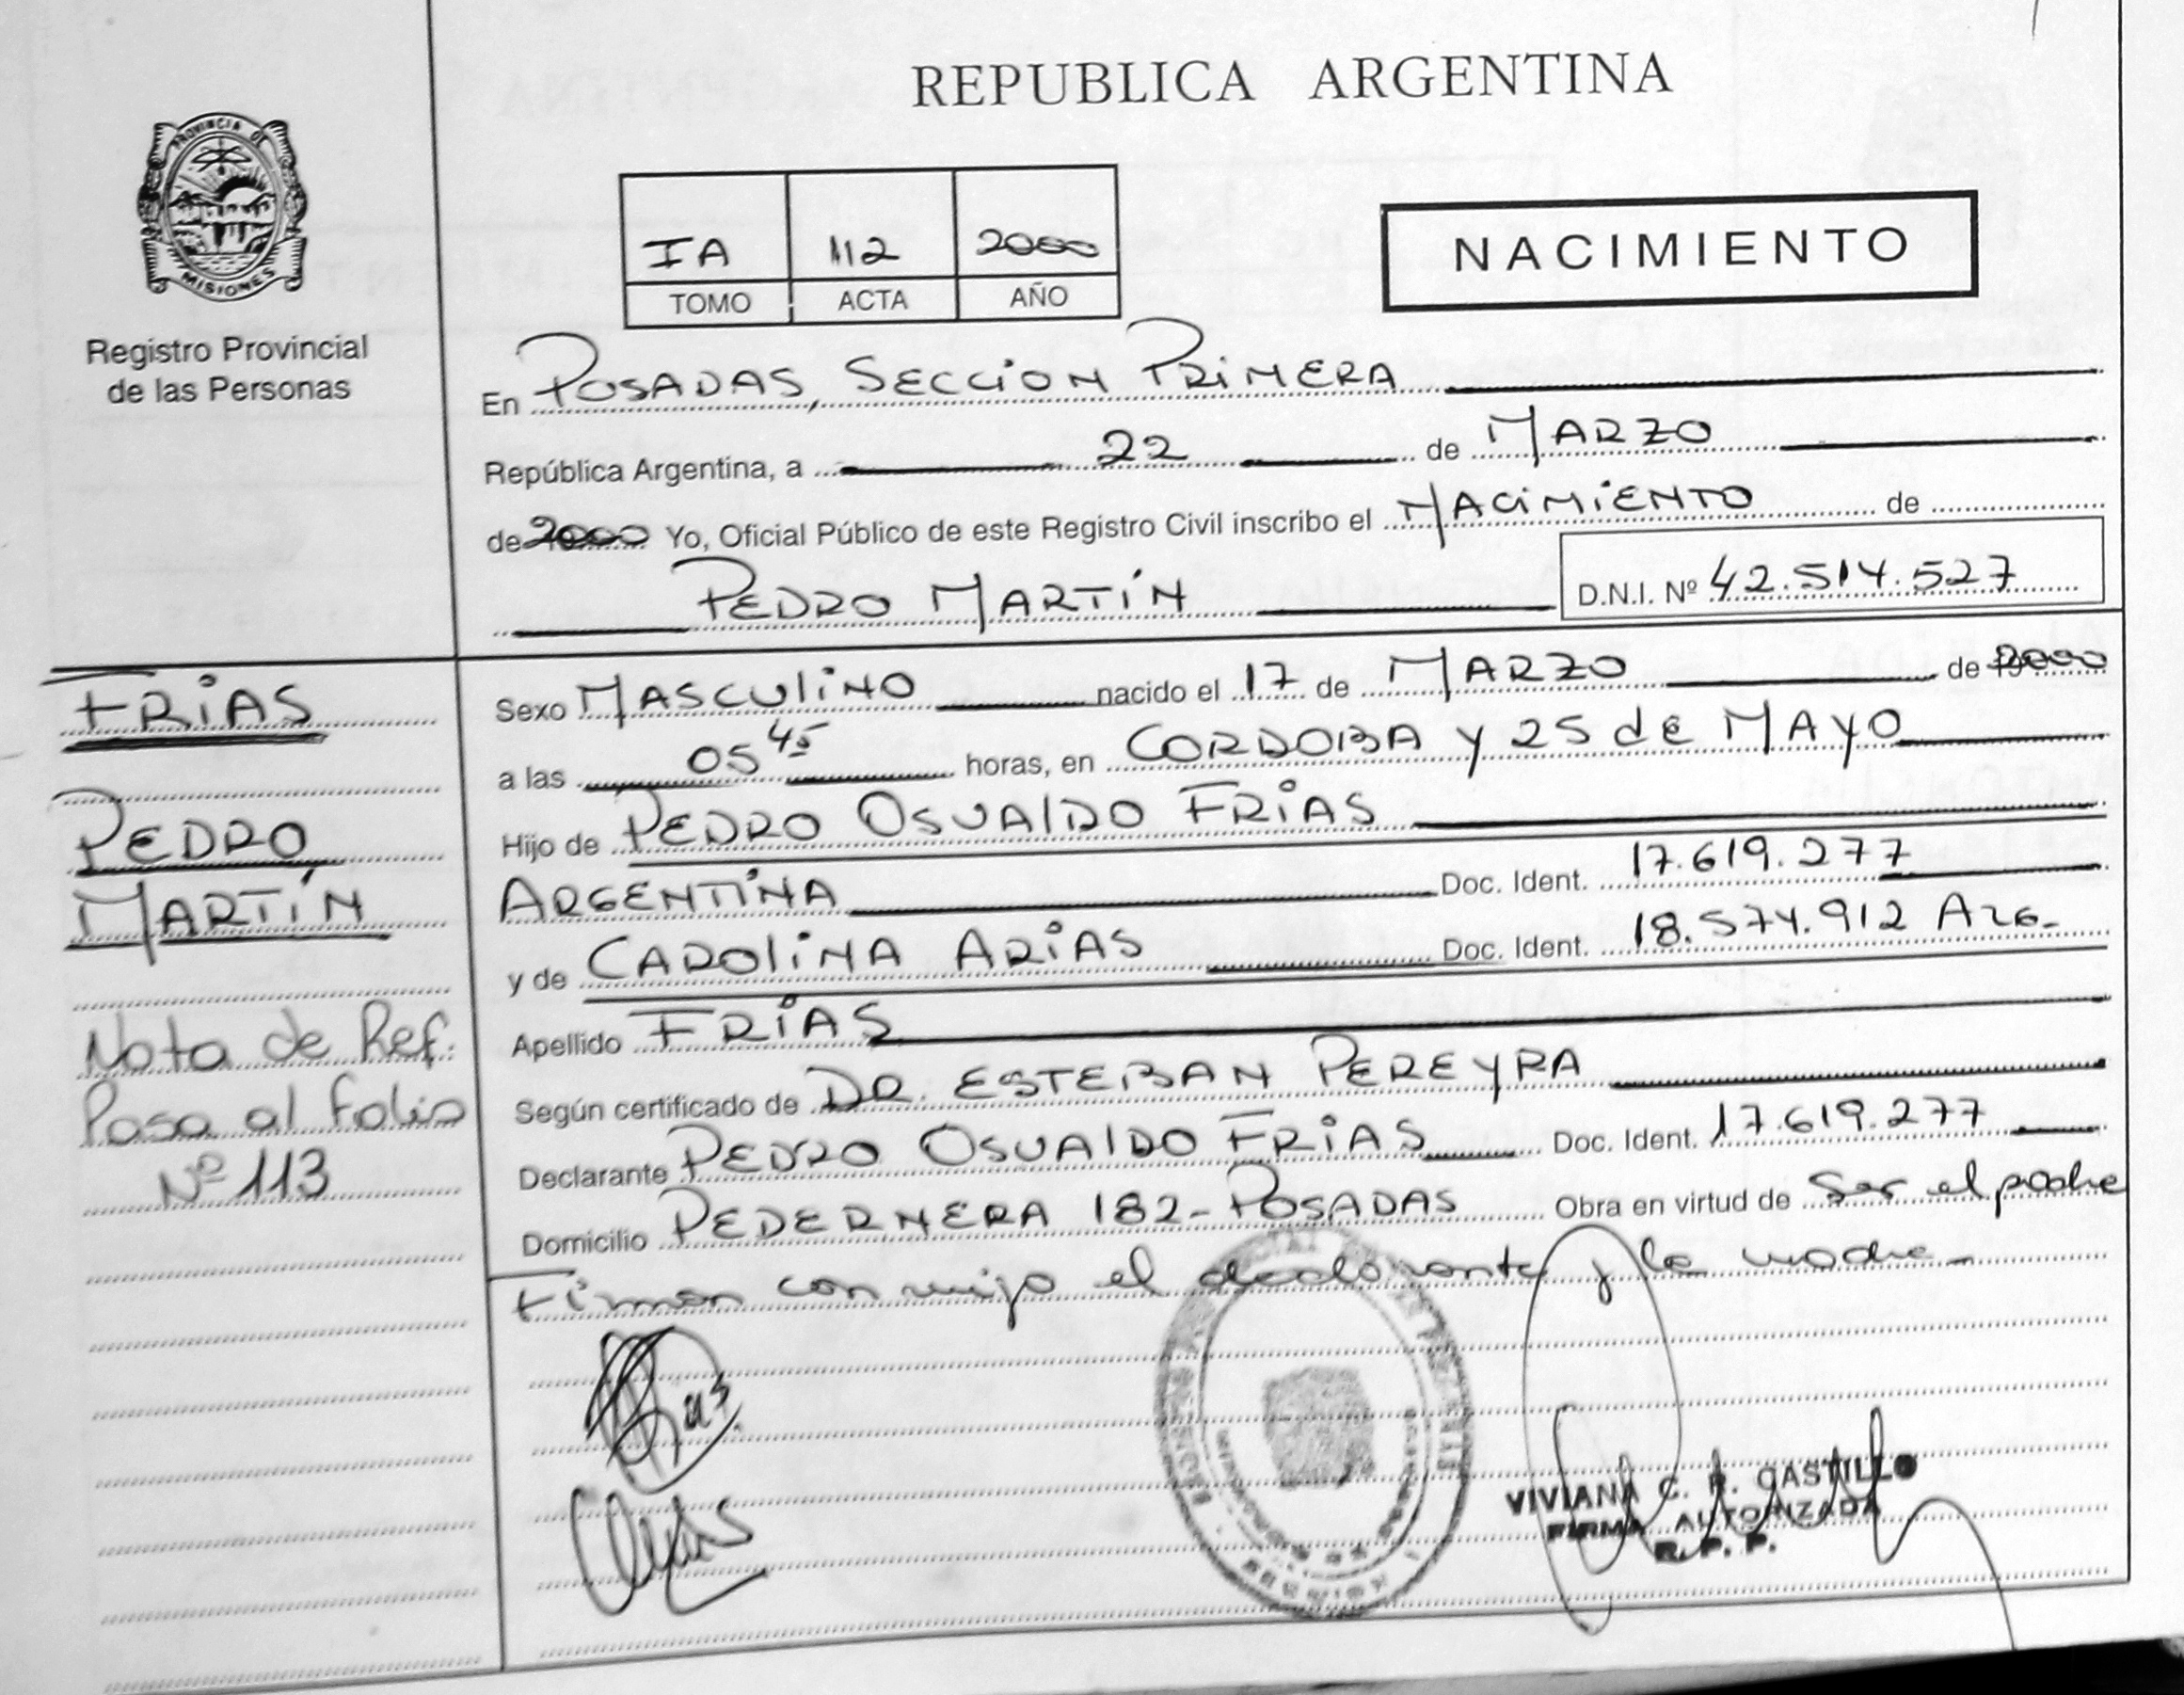 REPUBLICA ARGENTINA
PROVINCIA DE MISIONES
Registro Provincial
de las Personas
IA 112 2000
TOMO ACTA AÑO
NACIMIENTO
En POSADAS, SECCION PRIMERA
República Argentina, a 22 de MARZO
de 2000 Yo, Oficial Público de este Registro Civil inscribo el NACIMIENTO de
PEDRO MARTÍN D.N.I. Nº 42.514.527
FRIAS
PEDRO
MARTÍN
Nota de Ref.
Pasa al Folio
Nº 113
Sexo MASCULINO nacido el 17 de MARZO de 2000
a las 05 45 horas, en CORDOBA Y 25 de MAYO
Hijo de PEDRO OSVALDO FRIAS
ARGENTINA Doc. Ident. 17.619.277
y de CAROLINA ARIAS Doc. Ident. 18.574.912 ARG-
Apellido FRIAS
Según certificado de DR. ESTEBAN PEREYRA
Declarante PEDRO OSVALDO FRIAS Doc. Ident. 17.619.277
Domicilio PEDERNERA 182-POSADAS Obra en virtud de Ser el padre
Firman conmigo el declarante y la madre-
VIVIANA C. R. CASTILLO
FIRMA AUTORIZADA
R. P. P.